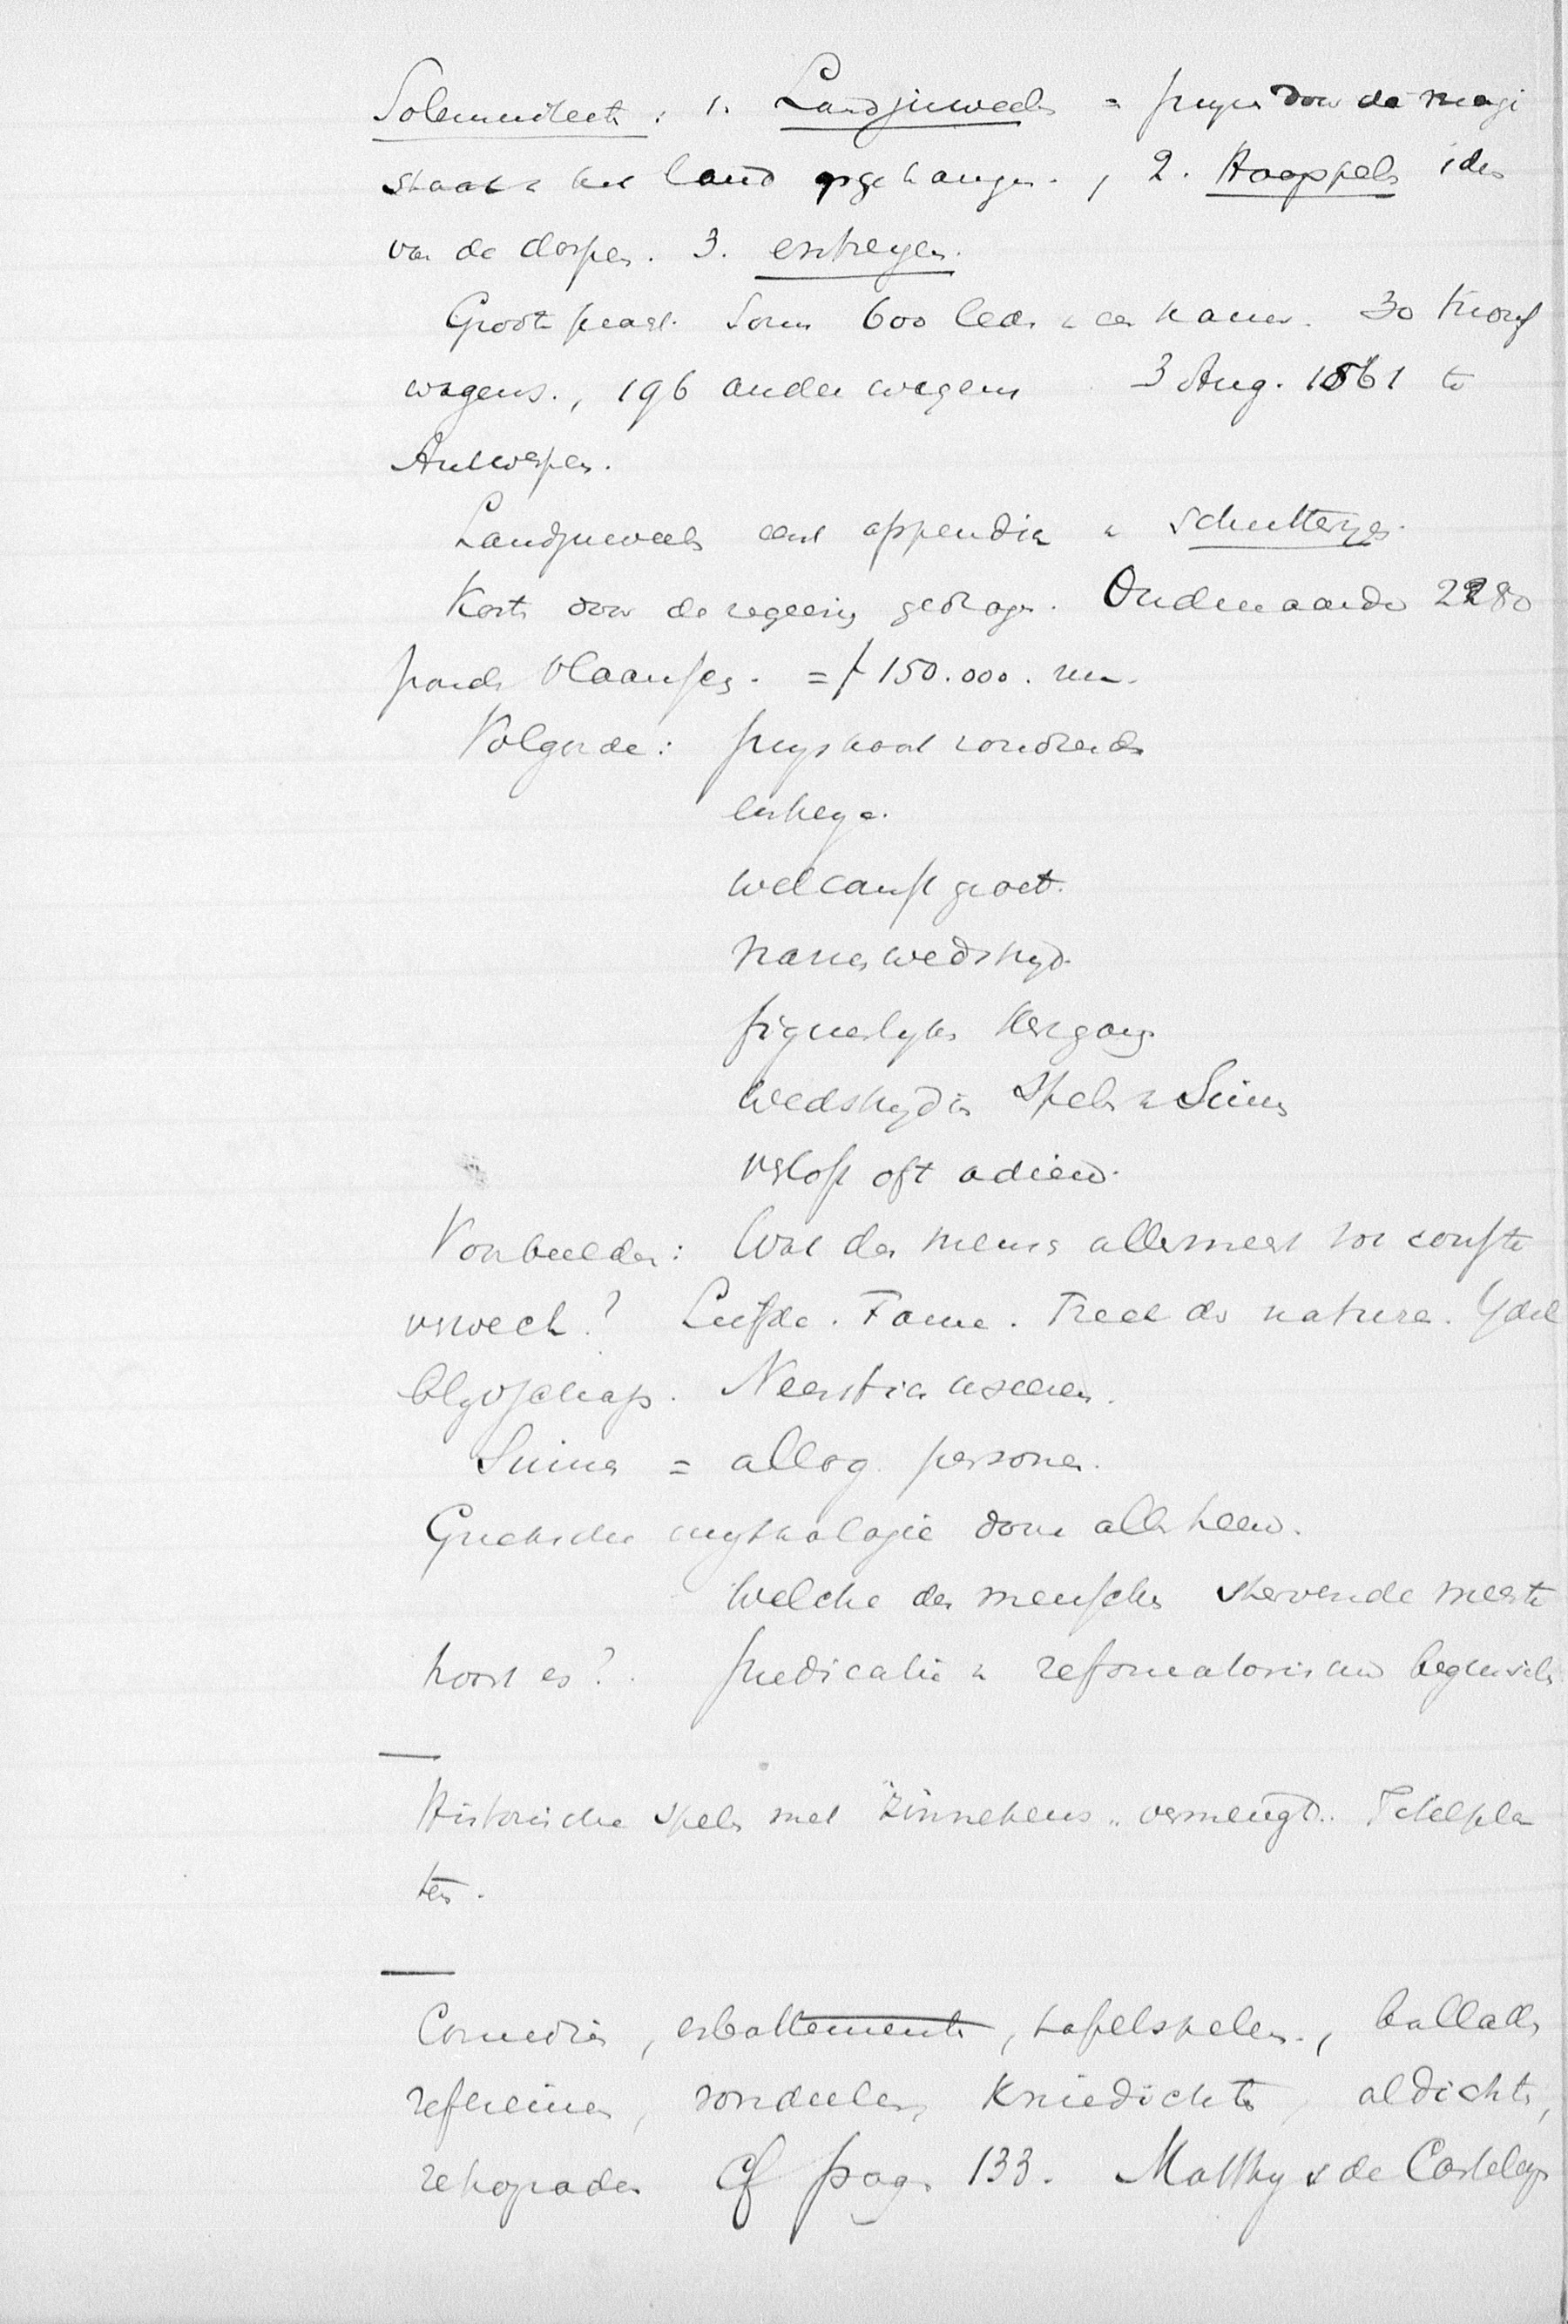 Solemniteit: 1. Landjuweels = pryzen door de magi
straat v het land opgehangen., 2. Haagspels idem
van de dorpen. 3. entreyen.
Groote pracht. Soms 600 leden v een kamer. 30 triomf
wagens., 196 andere wagens 3 Aug. 1561 te
Antwerpen.
Landjuweels eerst appendix v schutteryen.
Kosten door de regeering gedragen. Oudenaarde 2280
ponden Vlaamsch. = f 150.000.
Volgorde: pryskaart rondzenden
entreye.
welcomst groet.
wedstryd.
figuerlyke
wedstryd in Spelen v Sinne
verlof oft adieu.
Voorbeelden: Wat den mensch allermeest tot consten
verwect? Liefde. Fame. Treck der nature. Ydel
blyschap. Neerstich
Sinne = alleg. personen.
Grieksche mythologie door alles heen.
Welcke den mensche stervende meeste
troost es? predicatie v reformatorische beginselen
Historische spelen met "Zinnekens" vermengd. Titelpla
ten.
Comedies, esbattementen, tafelspelen, balladen,
refreinen, rondeelen, Kniedichten, aldichten,
retrograden Cf pag. 133. Matthys de Casteleyn